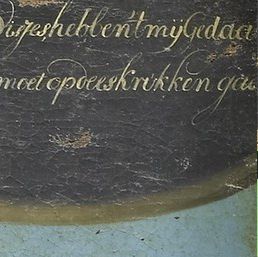 Visjes hebben't mij Gedaa
moet op veeskrikken gaa